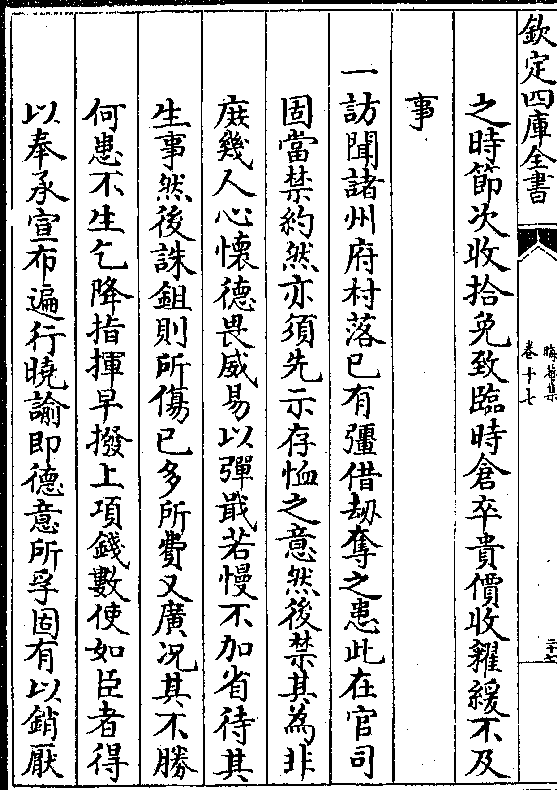 欽定四庫全書
晦菴集
卷十七
之時節次收拾免致臨時倉卒貴價收糴緩不及
事
一訪聞諸州府村落已有彊借刼奪之患此在官司
固當禁約然亦須先示存恤之意然後禁其為非
庶幾人心懷德畏威易以彈戢若慢不加省待其
生事然後誅鉏則所傷已多所費又廣况其不勝
何患不生乞降指揮早撥上項錢數使如臣者得
以奉承宣布遍行曉諭即德意所孚固有以銷厭